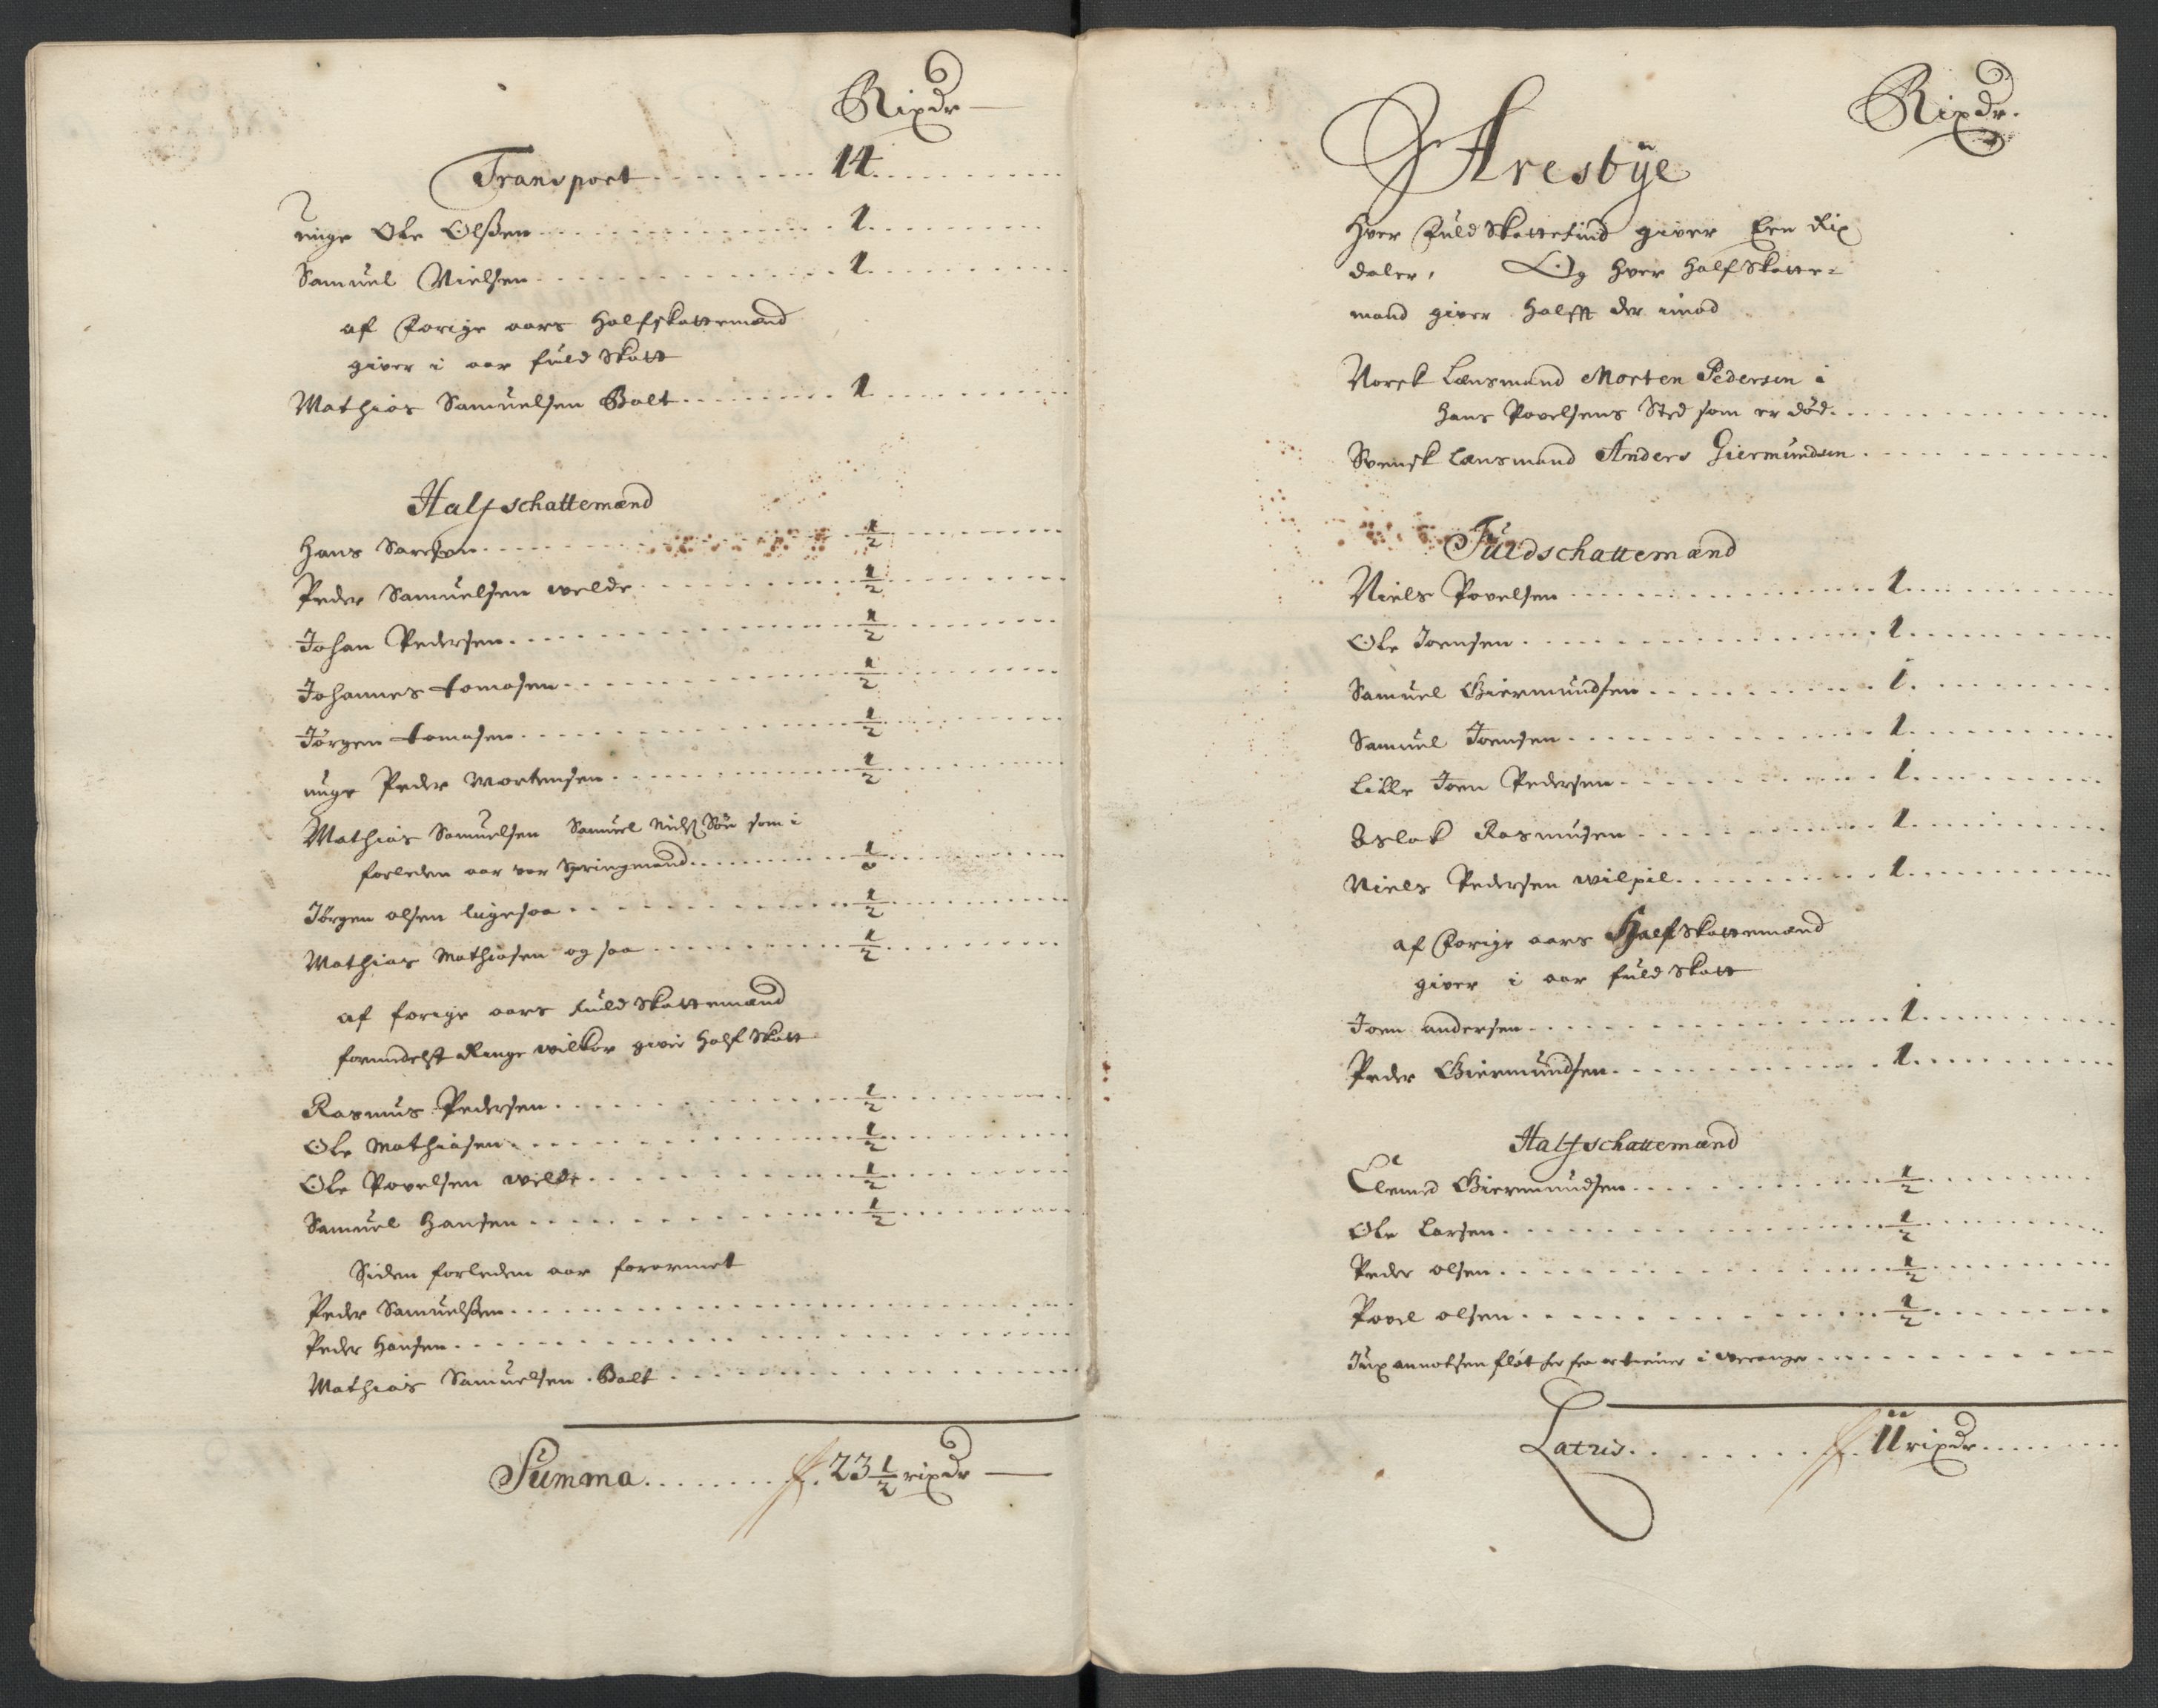 Rixdr
Transport 14
unge Ole Olssen 1
Samuel Nielsen 1
af Forige aars Halfskattemænd
giver i aar fuld Skatt
Mathias Samuelsen Balt 1
Halfschattemænd
Hans Saresen ½
Peder Samuelsen welde ½
Johan Pedersen ½
Johannes tomasen ½
Jörgen tomasen ½
unge Peder Mortensen ½
Mathias Samuelsen Samuel Niels Sön som i
forleden aar var Springmand ½
Jörgen olsen ligesaa ½
Mathias Mathiasen og saa ½
af forige aars fuld Skattemænd
formedelst Ringe wilkor giver Half Skatt
Rasmus Pedersen ½
Ole Mathiasen ½
Ole Povelsen welde ½
Samuel Hansen ½
Siden forleden aar forarmet
Peder Samuelssen
Peder Hansen
Mathias Samuelsen Balt
Summa 23½ rixdr
Rixdr.
Aresbÿe
Hver Fuld Skattefind giver Een Rix
daler, Og hver Half Skatte=
mand giver Halfft der imod
Norsk Lænsmand Morten Pedersen i
Hans Povelsens Sted som er död
Svensk Lænsmand Anders Giermundsen
Fuldschattemænd
Niels Povelsen 1
Ole Joensen 1
Samuel Giermundsen 1
Samuel Joensen 1
Lille Joen Pedersen 1
Aslak Rasmusen 1
Niels Pedersen wilpil 1
af Forige aars Half Skattemænd
giver i aar fuld Skatt
Joen andersen 1
Peder Giermundsen 1
Halfschattemænd
Clemed Giermundsen ½
Ole Larsen ½
Peder olsen ½
Povel olsen ½
Jux annotsen flöt her fra og tiener i Weranger
Lateris 11 rixdr